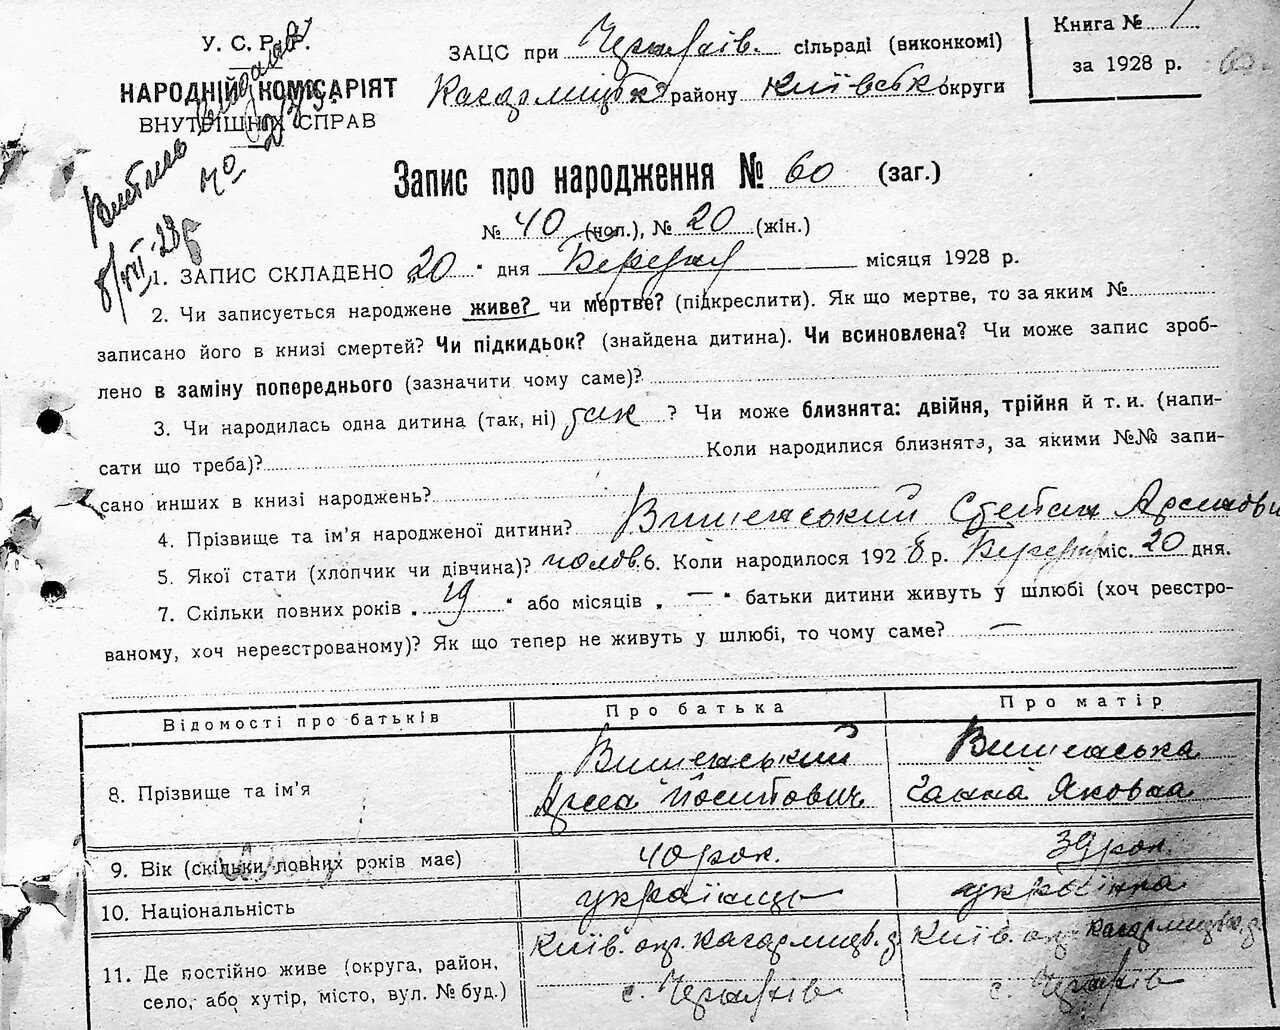 У. С. Р. Р.
НАРОДНІЙ КОМІСАРІЯТ
ВНУТРІШНІХ СПРАВ
ЗАЦС при Черняхів. сільраді (виконкомі)
Кагарлицьк району Київськ округи
Книга № 1
за 1928 р.
Запис про народження № 60 (заг.)
№ 40 (чол.), № 20 (жін.)
1. ЗАПИС СКЛАДЕНО 20 " дня Березня місяця 1928 р.
2. Чи записується народжене живе? чи мертве? (підкреслити). Як що мертве, то за яким №
записано його в книзі смертей? Чи підкидьок? (знайдена дитина). Чи всиновлена? Чи може запис зроб-
лено в заміну попереднього (зазначити чому саме)?
3. Чи народилась одна дитина (так, ні) так ? Чи може близнята: двійня, трійня й т. и. (напи-
сати що треба)? Коли народилися близнята, за якими №№ запи-
сано инших в книзі народжень?
4. Прізвище та ім'я народженої дитини? Вишенський Степан
5. Якої стати (хлопчик чи дівчина)? чолов. 6. Коли народилося 192 8 р. Березня міс. 20 дня.
7. Скільки повних років „ 19 " або місяців „ — " батьки дитини живуть у шлюбі (хоч реєстро-
ваному, хоч нереєстрованому)? Як що тепер не живуть у шлюбі, то чому саме? —
Відомості про батьків Про батька Про матір
8. Прізвище та ім'я
Вишенський
Йосипович
Вишенська
Ганна Яковна
9. Вік (скільки повних років має) 40 рок. 39 рок.
10. Національність українць українка
11. Де постійно живе (округа, район,
село, або хутір, місто, вул. № буд.)
Київ. окр. Кагарлицьк. р.
с. Черняхів
Київ. окр. Кагарлицьк. р.
с. Черняхів